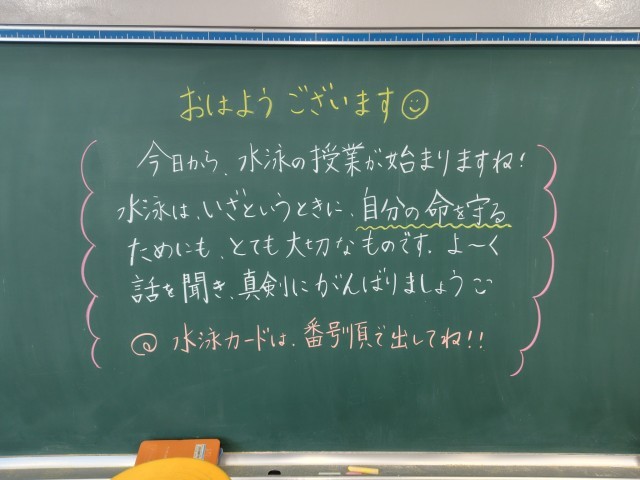 おはようございます☺
今日から、水泳の授業が始まりますね!
水泳は、いざというときに、自分の命を守る
ためにも、とても大切なものです。よ〜く
話を聞き、真剣にがんばりましょう
@ 水泳カードは、番号順で出してね!!